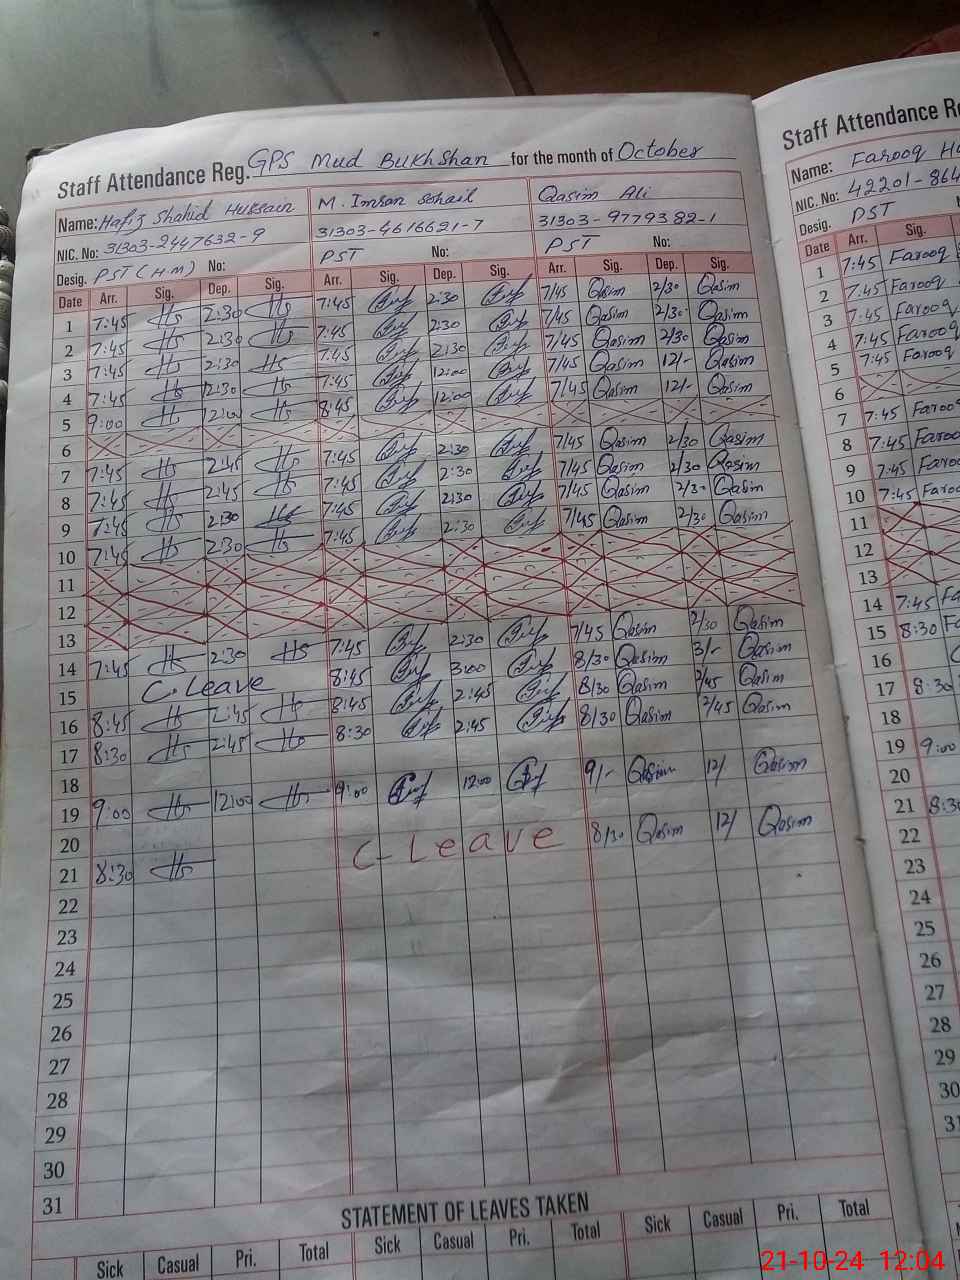 Staff Attendance Reg. GPS Mud Bukhshan for the month of October
Name: Hafiz Shahid Hussain M. Imran Sohail Qasim Ali
NIC. No: 31303-2447632-9 31303-4616621-7 31303-9779382-1
Desig. PST (H M) No: PST No: PST No:
Date Arr. Sig. Dep. Sig. Arr. Sig. Dep. Sig. Arr. Sig. Dep. Sig.
1 7:45 Hs 2:30 Hs 7:45 2:30 7/45 Qasim 2/30 Qasim
2 7:45 Hs 2:30 Hs 7:45 2:30 7/45 Qasim 2/30 Qasim
3 7:45 Hs 2:30 Hs 7:45 2:30 7/45 Qasim 2/30 Qasim
4 7:45 Hs 12:30 Hs 7:45 12:00 7/45 Qasim 12/- Qasim
5 9:00 Hs 12:00 Hs 8:45 12:00 7/45 Qasim 12/- Qasim
6
7 7:45 Hs 2:45 Hs 7:45 2:30 7/45 Qasim 2/30 Qasim
8 7:45 Hs 2:45 Hs 7:45 2:30 7/45 Qasim 2/30 Qasim
9 7:45 Hs 2:30 Hs 7:45 2:30 7/45 Qasim 2/30 Qasim
10 7:45 Hs 2:30 Hs 7:45 2:30 7/45 Qasim 2/30 Qasim
11
12
13
14 7:45 Hs 2:30 Hs 7:45 2:30 7/45 Qasim 2/30 Qasim
15 C. Leave 8:45 3:00 8/30 Qasim 3/- Qasim
16 8:45 Hs 2:45 Hs 8:45 2:45 8/30 Qasim 2/45 Qasim
17 8:30 Hs 2:45 Hs 8:30 2:45 8/30 Qasim 2/45 Qasim
18
19 9:00 Hs 12:00 Hs 9:00 12:00 9/- Qasim 12/ Qasim
20
21 8:30 Hs C-Leave 8/30 Qasim 12/ Qasim
22
23
24
25
26
27
28
29
30
31
STATEMENT OF LEAVES TAKEN
Sick Casual Pri. Total Sick Casual Pri. Total Sick Casual Pri. Total
Staff Attendance
Name: Farooq
NIC. No: 42201-864
Desig. PST
Date Arr. Sig.
1 7:45 Farooq
2 7:45 Farooq
3 7:45 Farooq
4 7:45 Farooq
5 7:45 Farooq
6
7 7:45
8 7:45
9 7:45
10 7:45
11
12
13
14 7:45
15 8:30
16
17 8:30
18
19 9:00
20
21 8:30
22
23
24
25
26
27
28
29
30
31
21-10-24 12:04